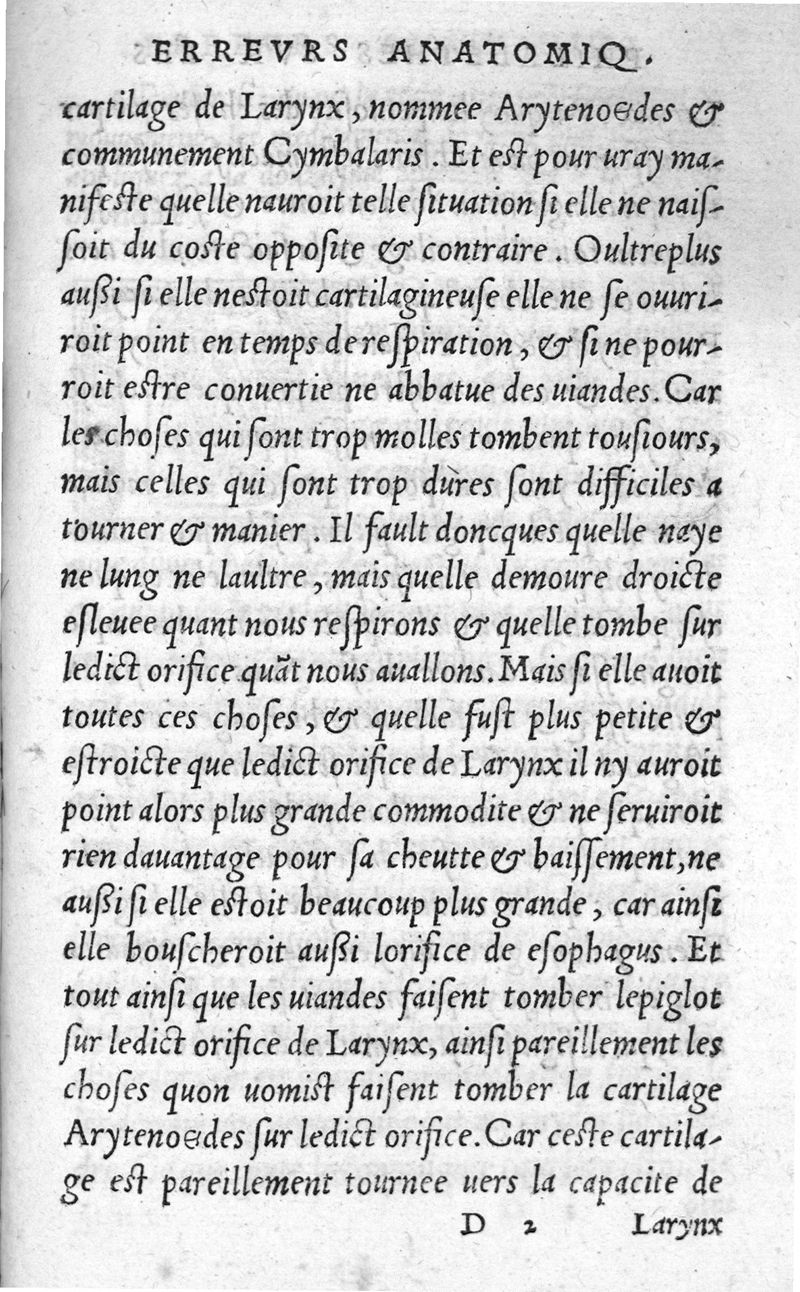 ERREVRS ANATOMIQ.
cartilage de Larynx, nommee Arytenoedes &
communement Cymbalaris. Et est pour uray ma-
nifeste quelle nauroit telle situation si elle ne nais-
soit du coste opposite & contraire. Oultreplus
außi si elle nestoit cartilagineuse elle ne se ouuri-
roit point en temps de respiration, & si ne pour-
roit estre conuertie ne abbatue des uiandes. Car
les choses qui sont trop molles tombent tousiours,
mais celles qui sont trop dures sont difficiles a
tourner & manier. Il fault doncques quelle naye
ne lung ne laultre, mais quelle demoure droicte
esleuee quant nous respirons & quelle tombe sur
ledict orifice quãt nous auallons. Mais si elle auoit
toutes ces choses, & quelle fust plus petite &
estroicte que ledict orifice de Larynx il ny auroit
point alors plus grande commodite & ne seruiroit
rien dauantage pour sa cheutte & baissement, ne
außi si elle estoit beaucoup plus grande, car ainsi
elle bouscheroit außi lorifice de esophagus. Et
tout ainsi que les uiandes faisent tomber lepiglot
sur ledict orifice de Larynx, ainsi pareillement les
choses quon uomist faisent tomber la cartilage
Arytenoedes sur ledict orifice. Car ceste cartila-
ge est pareillement tournee uers la capacite de
D 2 Larynx